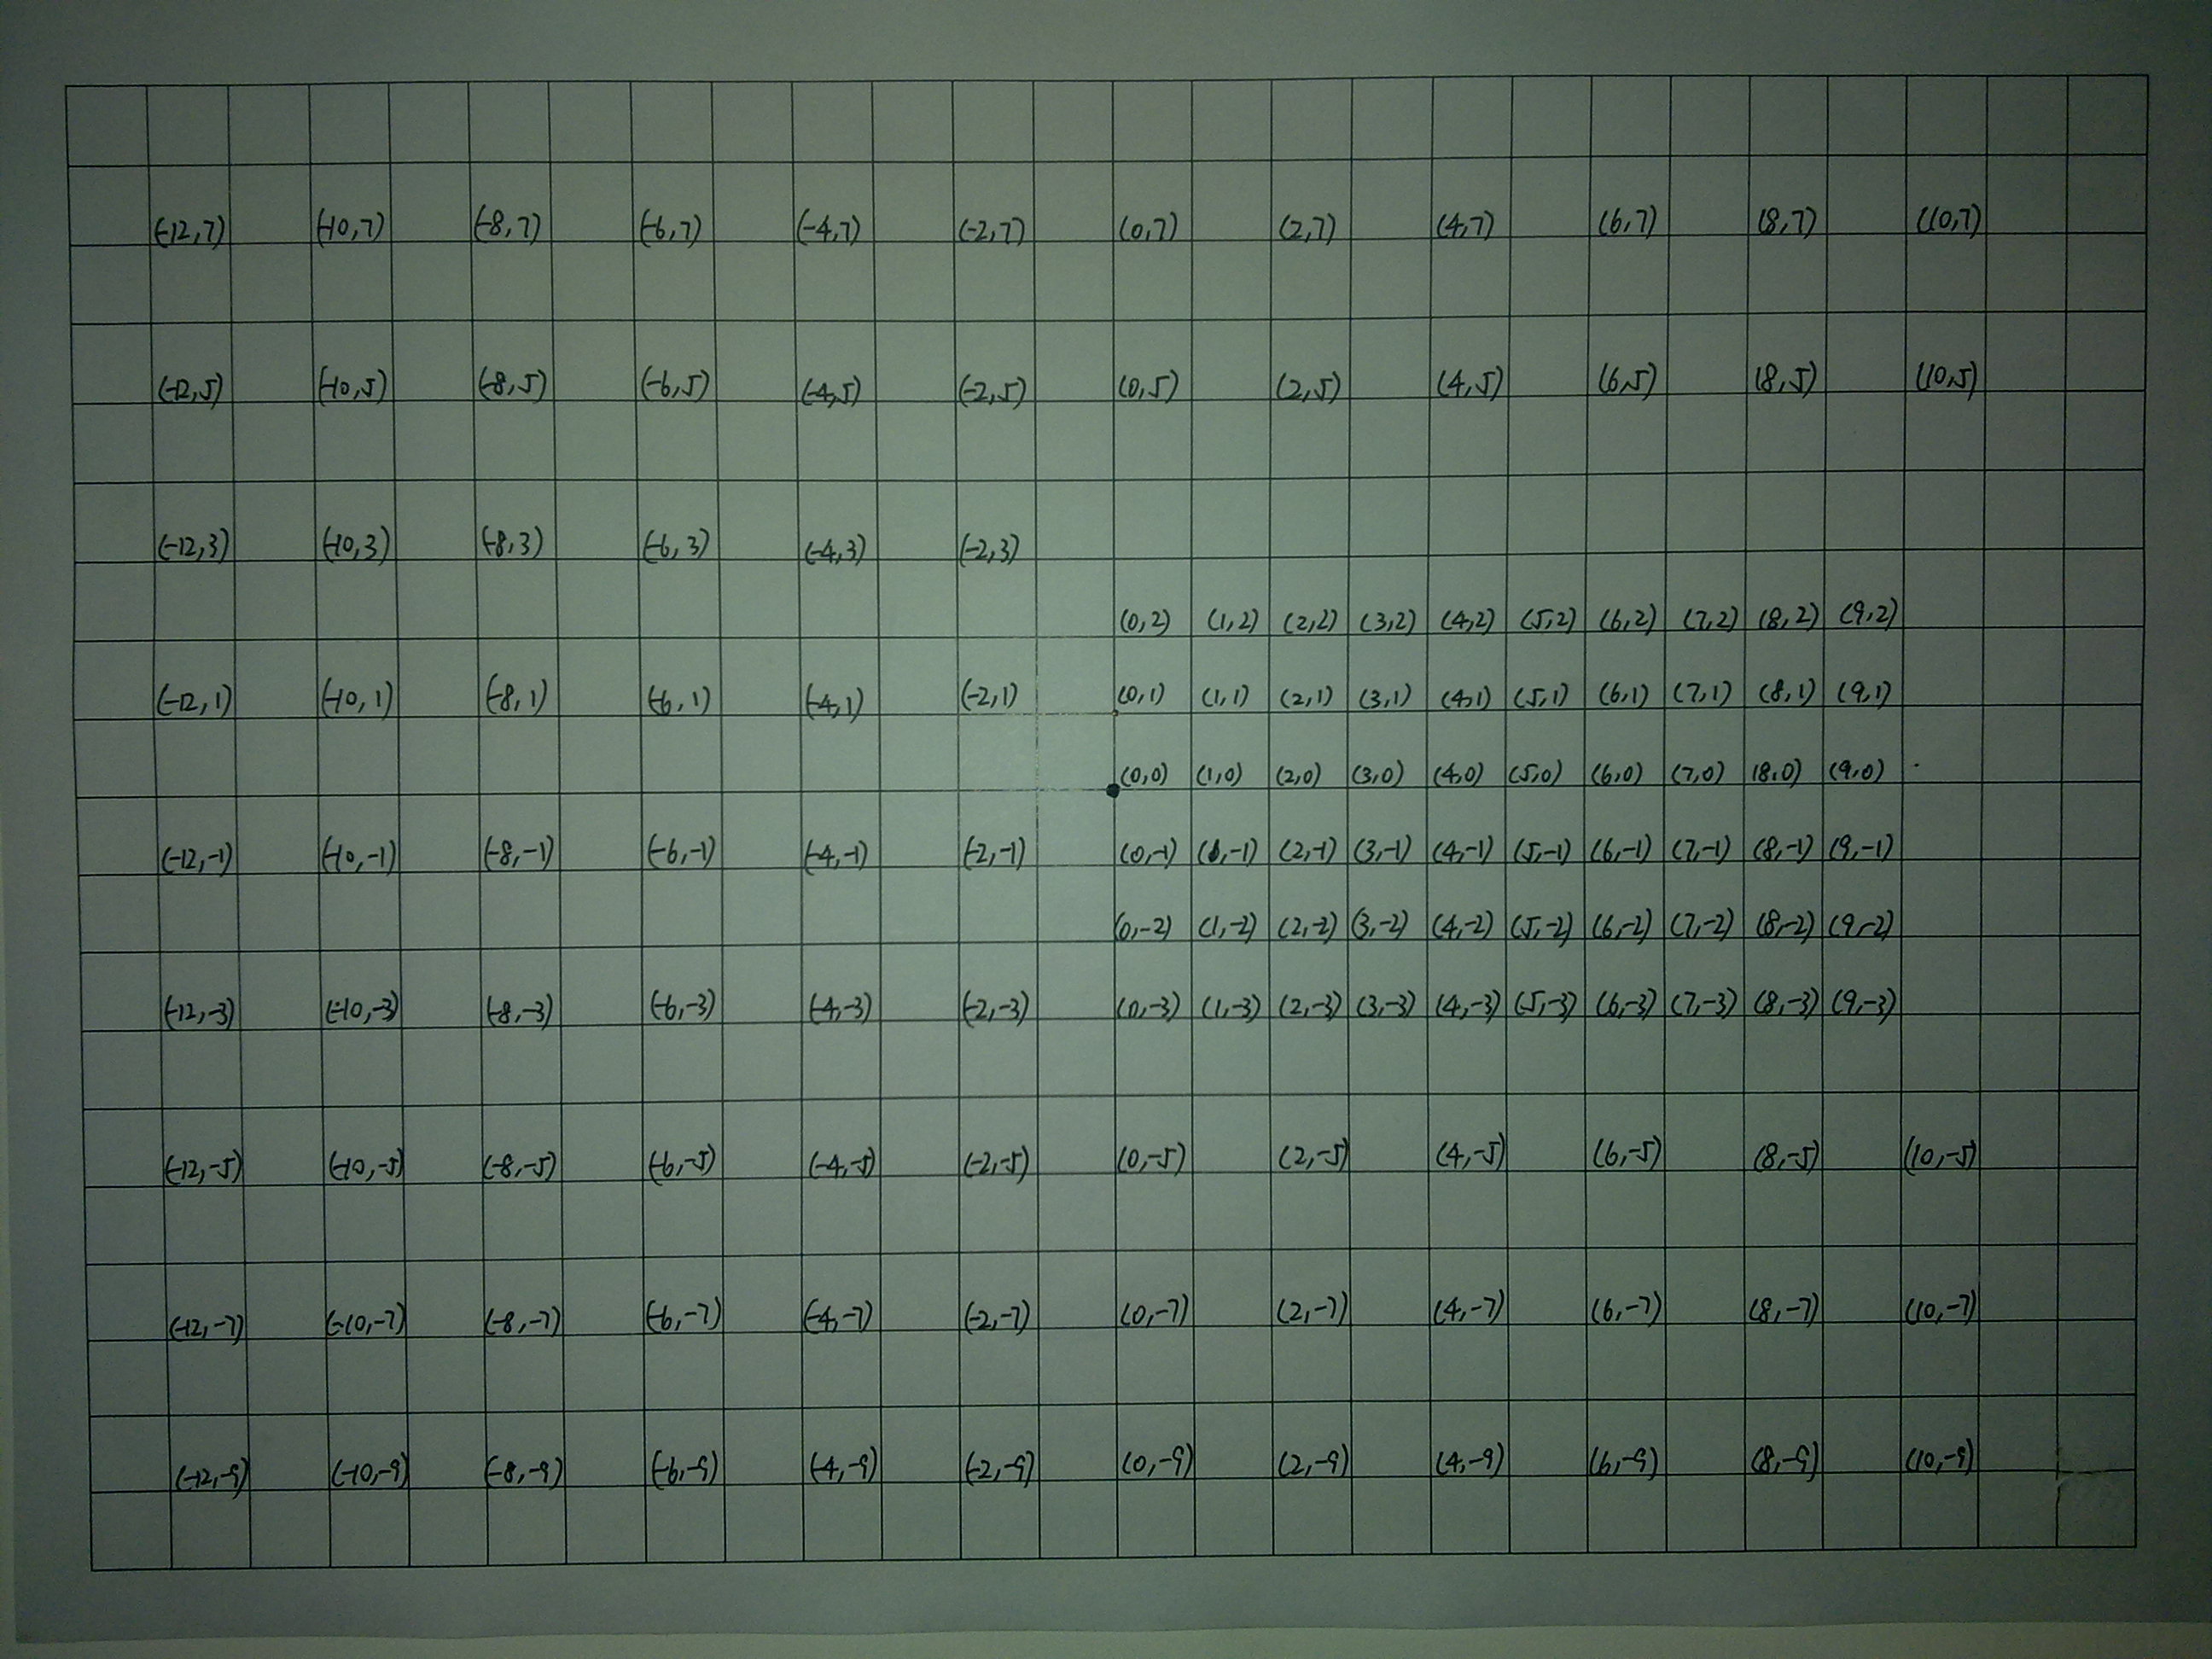 (-12,7) (-10,7) (-8,7) (-6,7) (-4,7) (-2,7) (0,7) (2,7) (4,7) (6,7) (8,7) (10,7)
(-12,5) (-10,5) (-8,5) (-6,5) (-4,5) (-2,5) (0,5) (2,5) (4,5) (6,5) (8,5) (10,5)
(-12,3) (-10,3) (-8,3) (-6,3) (-4,3) (-2,3)
(0,2) (1,2) (2,2) (3,2) (4,2) (5,2) (6,2) (7,2) (8,2) (9,2)
(-12,1) (-10,1) (-8,1) (-6,1) (-4,1) (-2,1) (0,1) (1,1) (2,1) (3,1) (4,1) (5,1) (6,1) (7,1) (8,1) (9,1)
(0,0) (1,0) (2,0) (3,0) (4,0) (5,0) (6,0) (7,0) (8,0) (9,0)
(-12,-1) (-10,-1) (-8,-1) (-6,-1) (-4,-1) (-2,-1) (0,-1) (1,-1) (2,-1) (3,-1) (4,-1) (5,-1) (6,-1) (7,-1) (8,-1) (9,-1)
(0,-2) (1,-2) (2,-2) (3,-2) (4,-2) (5,-2) (6,-2) (7,-2) (8,-2) (9,-2)
(-12,-3) (-10,-3) (-8,-3) (-6,-3) (-4,-3) (-2,-3) (0,-3) (1,-3) (2,-3) (3,-3) (4,-3) (5,-3) (6,-3) (7,-3) (8,-3) (9,-3)
(-12,-5) (-10,-5) (-8,-5) (-6,-5) (-4,-5) (-2,-5) (0,-5) (2,-5) (4,-5) (6,-5) (8,-5) (10,-5)
(-12,-7) (-10,-7) (-8,-7) (-6,-7) (-4,-7) (-2,-7) (0,-7) (2,-7) (4,-7) (6,-7) (8,-7) (10,-7)
(-12,-9) (-10,-9) (-8,-9) (-6,-9) (-4,-9) (-2,-9) (0,-9) (2,-9) (4,-9) (6,-9) (8,-9) (10,-9)